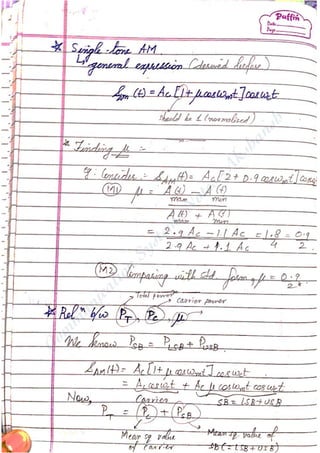 Puffin
Date
Page
* Single-tone AM
↳ general expression (derived before)
S_AM (t) = Ac [1 + μcosωmt] cosωct
should be 1 (normalized)
* Finding μ :-
g: Consider :- S_AM(t) = Ac[2 + 0.9cosωmt] cosωct
(M1) μ = A(t) max − A(t) min
A(t) max + A(t) min
= 2.9 Ac − 1.1 Ac = 1.8 = 0.9
2.9 Ac + 1.1 Ac 4 2
(M2) Comparing with std form, μ = 0.9
2
Total power carrier power
* Relⁿ b/w (P_T), (P_C), μ
We know P_SB = P_LSB + P_USB
S_AM(t) = Ac[1 + μcosωmt] cosωct
= Ac cosωct + Ac μ cosωmt cosωct
Now, Carrier SB = LSB + USB
P_T = (P_C) + (P_SB)
Mean sq value Mean sq value of
of carrier SB (= LSB + USB)